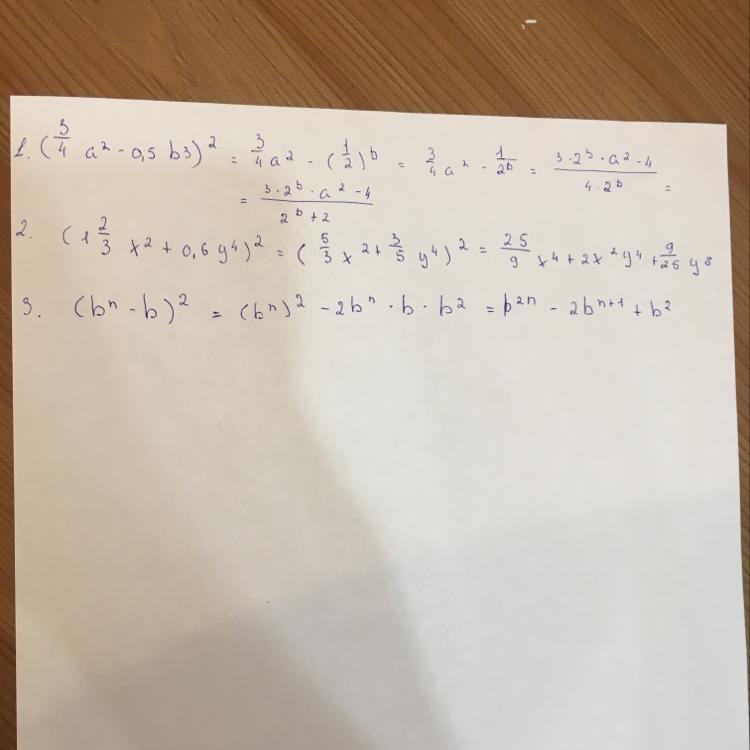 1. (3/4 a² - 0,5 b3)² = 3/4 a² - (1/2)ᵇ = 3/4 a² - 1/2ᵇ = (3·2ᵇ·a²-4)/(4·2ᵇ) =
= (3·2ᵇ·a²-4)/(2ᵇ+2)
2. (1 2/3 x² + 0,6 y⁴)² = (5/3 x² + 3/5 y⁴)² = 25/9 x⁴ + 2x²y⁴ + 9/25 y⁸
3. (bⁿ - b)² = (bⁿ)² - 2bⁿ · b · b² = b²ⁿ - 2bⁿ⁺¹ + b²